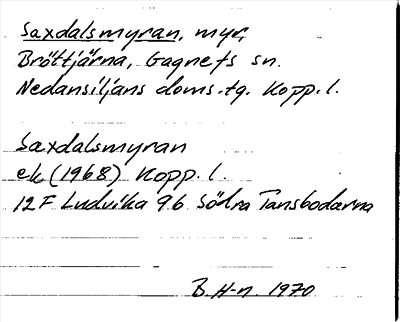 Saxdalsmyran, myr,
Bröttjärna, Gagnefs sn.
Nedansiljans doms.tg. Kopp.l.
Saxdalsmyran
ek (1968) Kopp. l.
12F Ludvika 9b Södra Tansbodarna
B. H-n. 1970